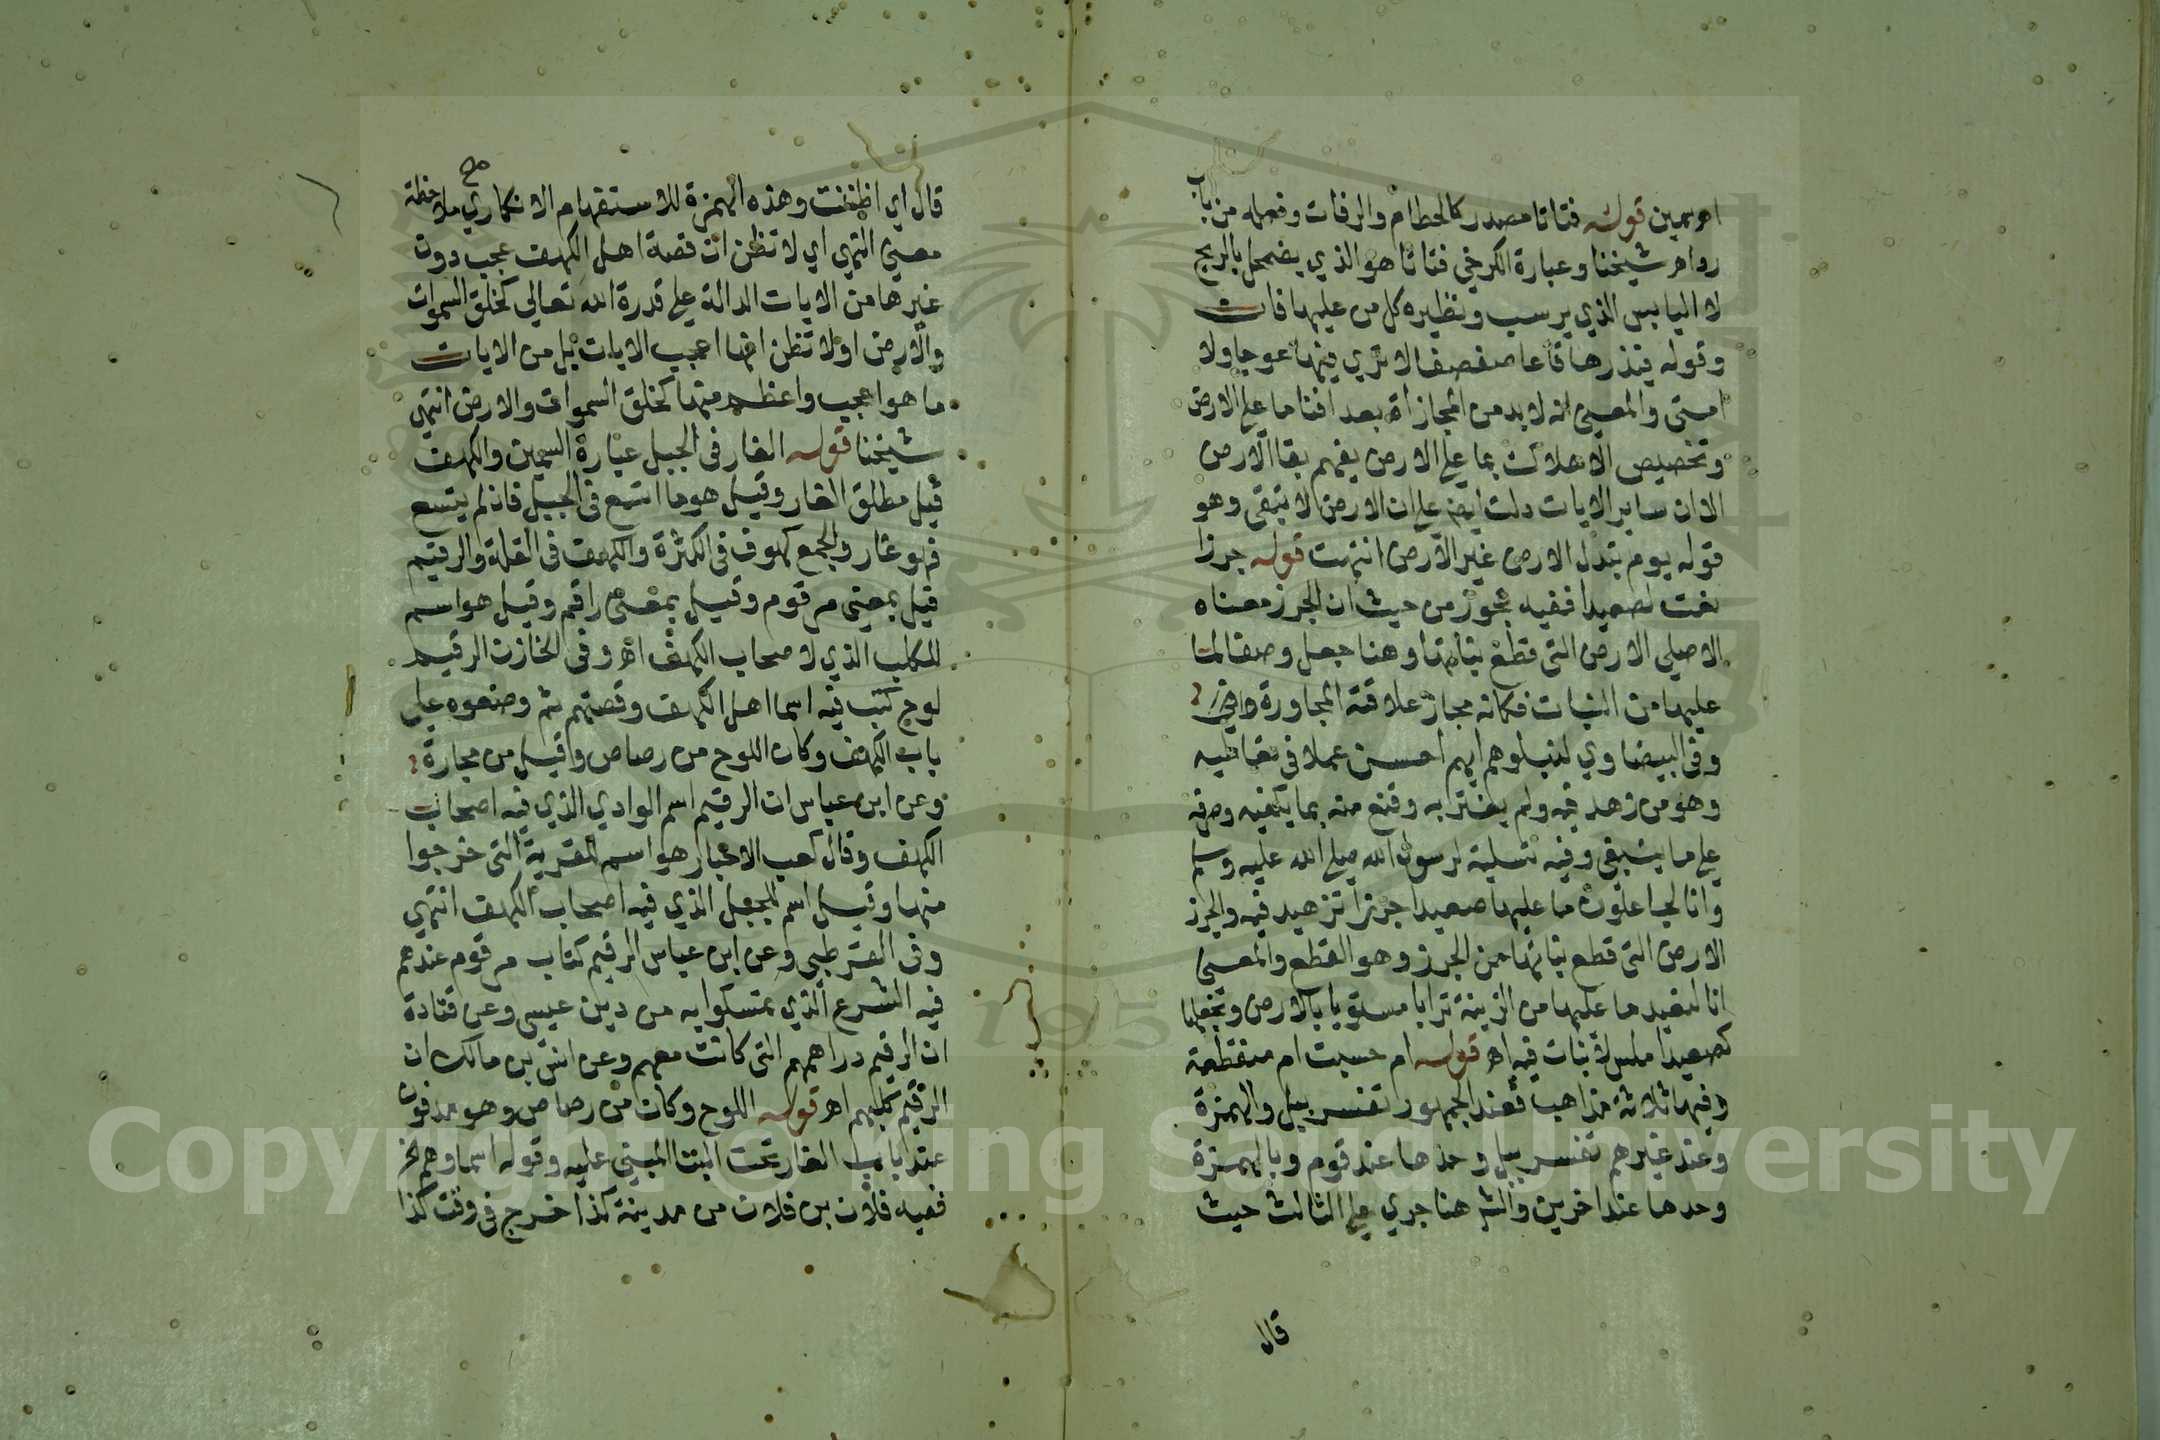 اهـ سمين قوله فتاتا مصدر كالحطام والرفات وفعله من باب
رد اهـ شيخنا وعبارة الكرخي فتاتا هو الذي يضمحل بالريح
لا اليابس الذي يرسب ونظيره كل من عليها فان
وقوله فيذرها قاعا صفصفا لا تري فيها عوجا ولا
امتي والمعني انه لا بد من المجازاة بعد افنا ما علي الارض
وتخصيص الاهلاك بما علي الارض يفهم بقا الارض
الا ان ساير الايات دلت ايضا علي ان الارض لا تبقي وهو
قوله يوم تبدل الارض غير الارض انتهت قوله جرزا
نعت لصعيدا ففيه تجوز من حيث ان الجرز معناه
الاصلي الارض التي قطع نباتها وهنا جعل وصفا لما
عليها من النبات فكانه مجاز علاقته المجاورة
وفي البيضاوي لنبلوهم ايهم احسن عملا في تعاطيه
وهو من زهد فيه ولم يغتر به وقنع منه بما يكفيه وصرفه
علي ما ينبغي وفيه تسلية لرسول الله صلي الله عليه وسلم
وانا لجاعلون ما عليها صعيدا جرزا تزهيد فيه والجرز
الارض التي قطع نباتها من الجرز وهو القطع والمعني
انا لنعيد ما عليها من الزينة ترابا مستويا بالارض ونجعلها
كصعيد املس لا نبات فيه اهـ قوله ام حسبت ام منقطعة
وفيها ثلاثة مذاهب فعند الجمهور تفسر ببل والهمزة
وعند غيرهم تفسر ببل وحدها عند قوم وبالهمزة
وحدها عند اخرين والش هنا جري علي الثالث حيث
قال
قال اي اظننت وهذه الهمزة للاستفهام الانكاري ملاحظة
صح
معني النهي اي لا تظن ان قصة اهل الكهف عجب دون
غيرها من الايات الدالة علي قدرة الله تعالي كخلق السموات
والارض او لا تظن انها اعجب الايات بل من الايات
ما هو اعجب واعظم منها كخلق السموات والارض انتهي
شيخنا قوله الغار في الجبل عبارة السمين والكهف
قيل مطلق الغار وقيل هو ما اتسع في الجبل فان لم يتسع
فهو غار والجمع كهوف في الكثرة واكهف في القلة والرقيم
قيل بمعني مرقوم وقيل بمعني راقم وقيل هو اسم
للكلب الذي لاصحاب الكهف اهـ وفي الخازن الرقيم
لوح كتب فيه اسما اهل الكهف وقصتهم ثم وضعوه علي
باب الكهف وكان اللوح من رصاص وقيل من حجارة
وعن ابن عباس ان الرقيم اسم الوادي الذي فيه اصحاب
الكهف وقال كعب الاحبار هو اسم للقرية التي خرجوا
منها وقيل اسم للجبل الذي فيه اصحاب الكهف انتهي
وفي القرطبي وعن ابن عباس الرقيم كتاب مرقوم عندهم
فيه الشرع الذي تمسكوا به من دين عيسي وعن قتادة
ان الرقيم دراهمهم التي كانت معهم وعن انس بن مالك ان
الرقيم كلبهم اهـ قوله اللوح وكان من رصاص وهو مدفون
عند باب الغار تحت البنا المبني عليه وقوله اسماوهم الخ
ففيه فلان بن فلان من مدينة كذا خرج في وقت كذا
Copyright © King Saud University
195